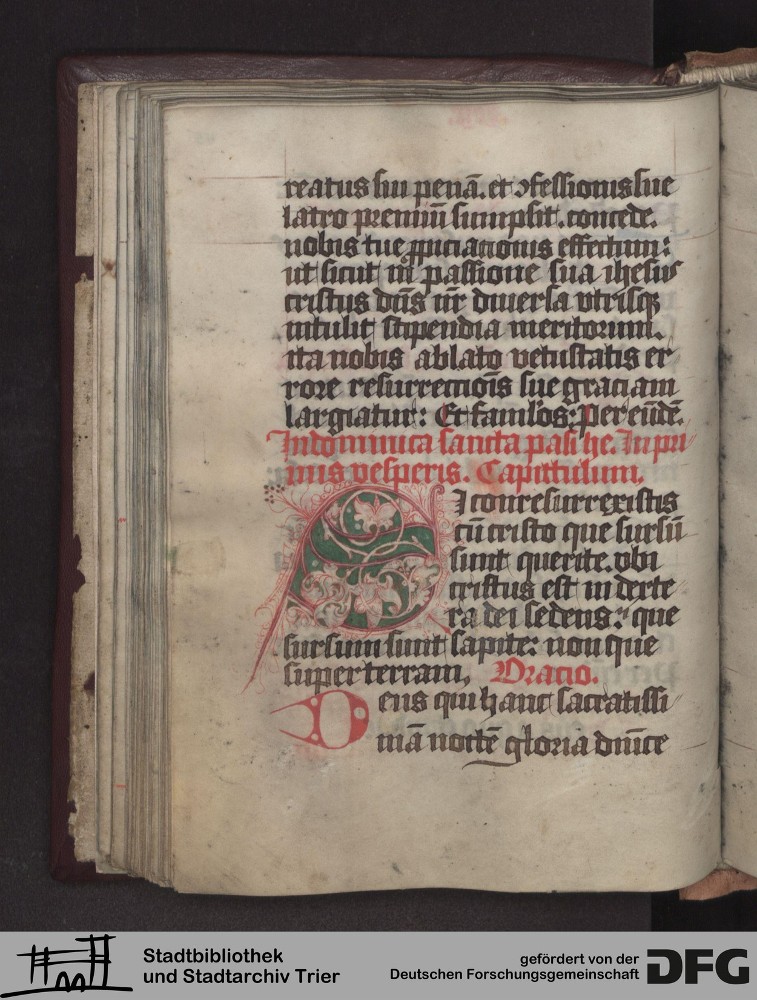 reatus sui penā. et ↄfessionis sue
latro premiū sumpsit. concede.
nobis tue ꝓpiciacionis effectum:
ut sicut in passione sua ihesus
cristus dn̄s nr̄ diuersa vtrisqꝫ
intulit stipendia meritorum.
ita nobis ablato vetustatis er
rore resurrectiōis sue graciam
largiatur: Et famlos: Per eūdē.
In dominica sancta pasche. In pri
mis vesperis. Capittulum.
Si conresurrexistis
cū cristo que sursū
sunt querite. vbi
cristus est in dexte
ra dei sedens: que
sursum sunt sapite: non que
super terram. Oracio.
Deus qui hanc sacratissi
mā noctē gloria dnīce
Stadtbibliothek
und Stadtarchiv Trier
gefördert von der
Deutschen Forschungsgemeinschaft
DFG